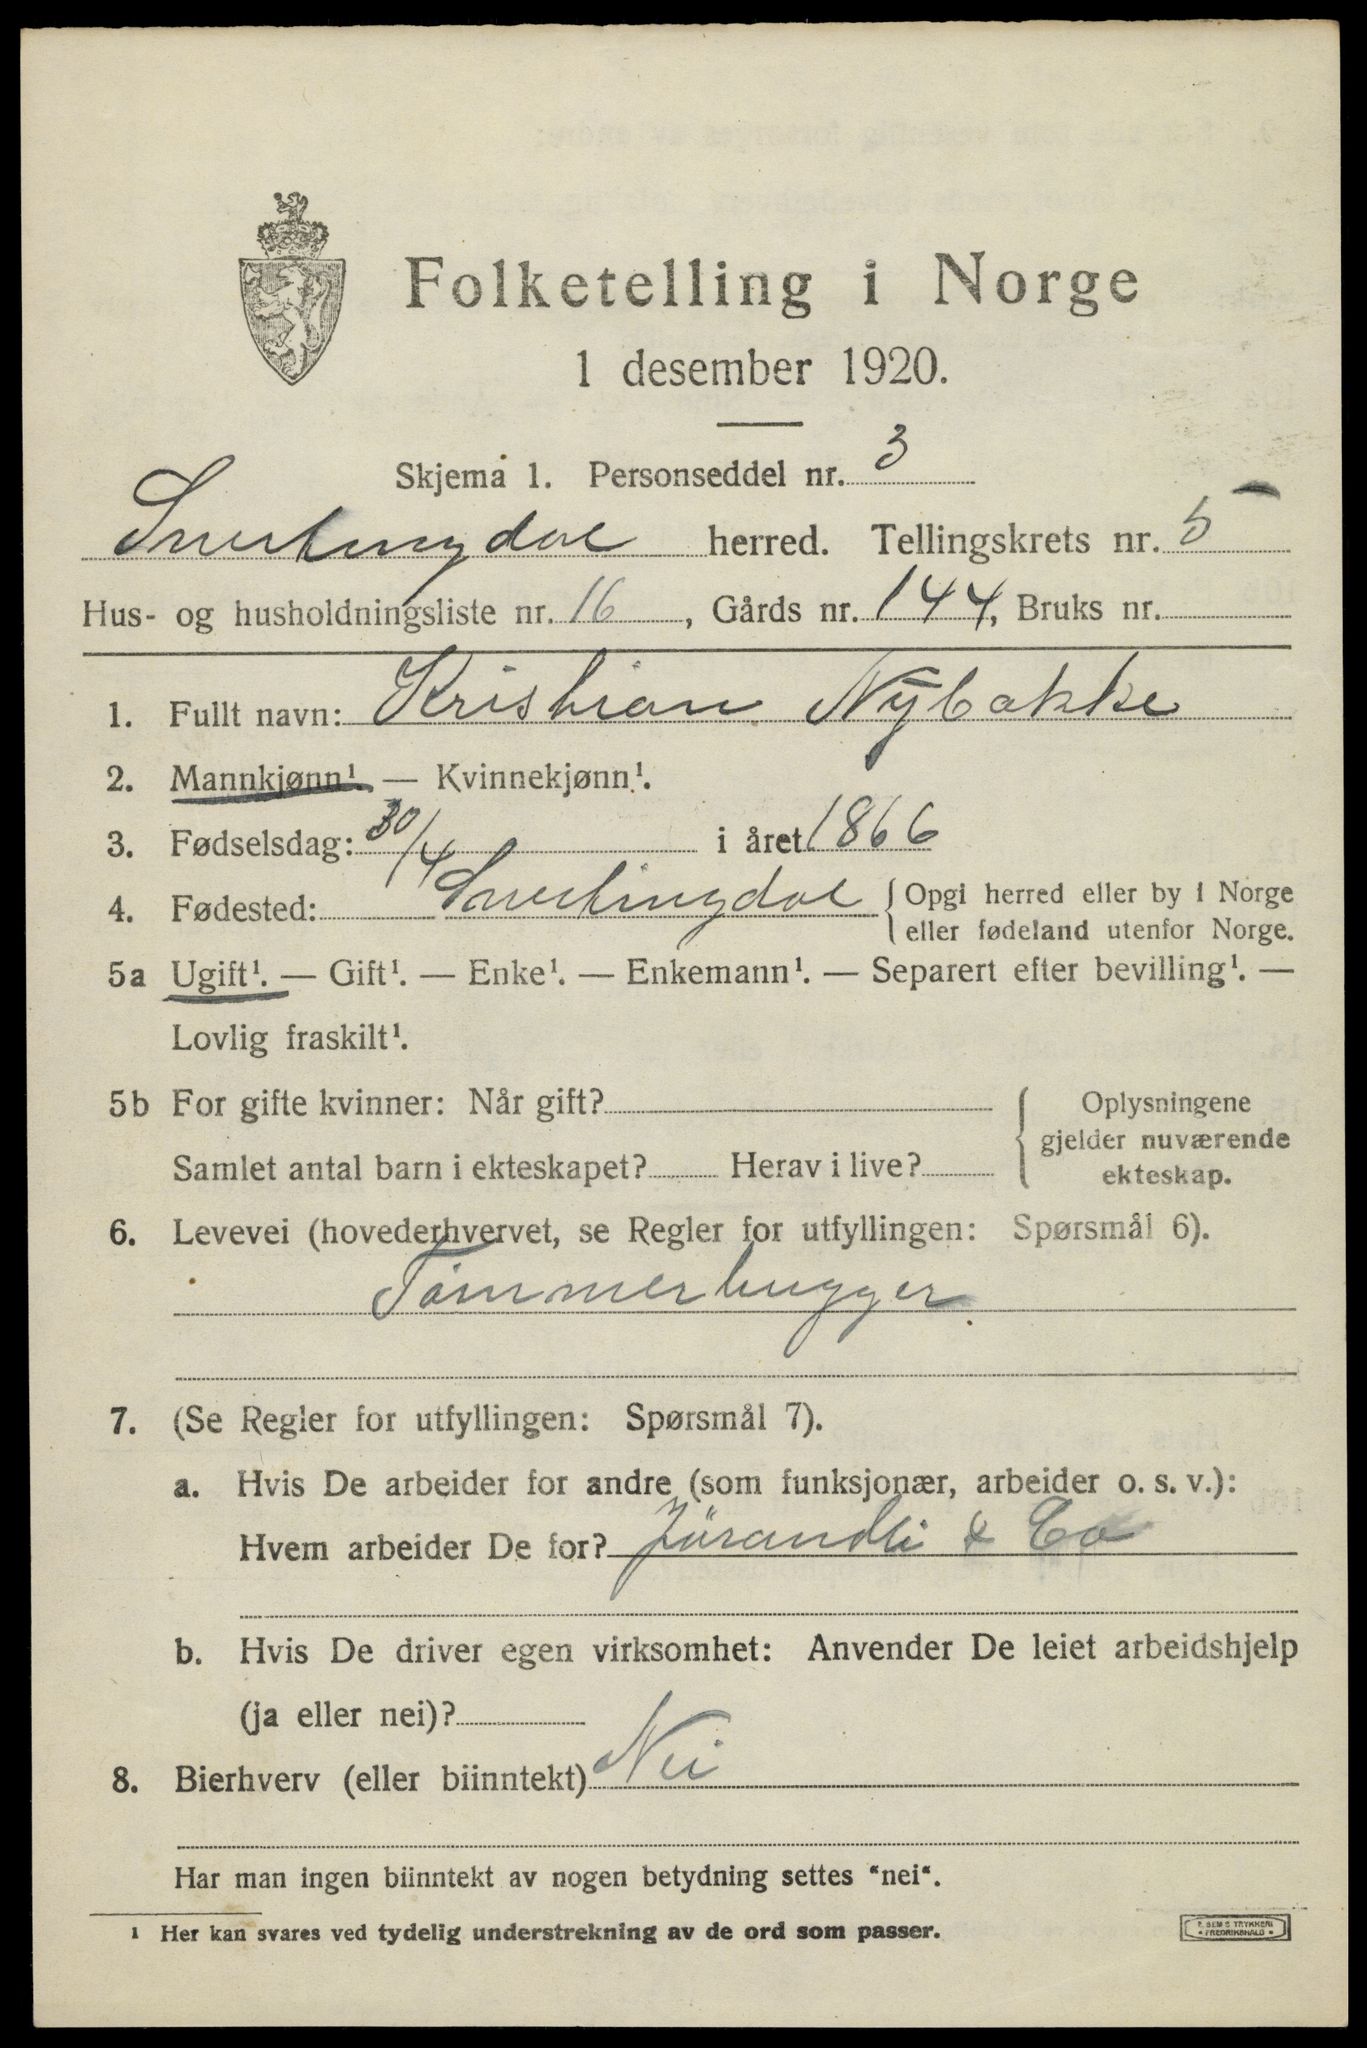 Folketelling i Norge
1 desember 1920.
Skjema 1. Personseddel nr. 3
Snertingdal herred. Tellingskrets nr. 5
Hus- og husholdningsliste nr. 16, Gårds nr. 144, Bruks nr.
1. Fullt navn: Kristian Nÿbakke
2. Mannkjønn¹. — Kvinnekjønn¹.
3. Fødselsdag: 30/4 i året 1866
4. Fødested: Snertingdal { Opgi herred eller by i Norge
eller fødeland utenfor Norge.
5a Ugift¹. — Gift¹. — Enke¹. — Enkemann¹. — Separert efter bevilling¹. —
Lovlig fraskilt¹.
5b For gifte kvinner: Når gift? { Oplysningene
gjelder nuværende
Samlet antal barn i ekteskapet? Herav i live? ekteskap.
6. Levevei (hovederhvervet, se Regler for utfyllingen: Spørsmål 6).
Tømmerhugger
7. (Se Regler for utfyllingen: Spørsmål 7).
a. Hvis De arbeider for andre (som funksjonær, arbeider o. s. v.):
Hvem arbeider De for? Jörandli & Co
b. Hvis De driver egen virksomhet: Anvender De leiet arbeidshjelp
(ja eller nei)?
8. Bierhverv (eller biinntekt) Nei
Har man ingen biinntekt av nogen betydning settes "nei".
¹ Her kan svares ved tydelig understrekning av de ord som passer.
E. SEM'S TRYKKERI
• FREDRIKSHALD •